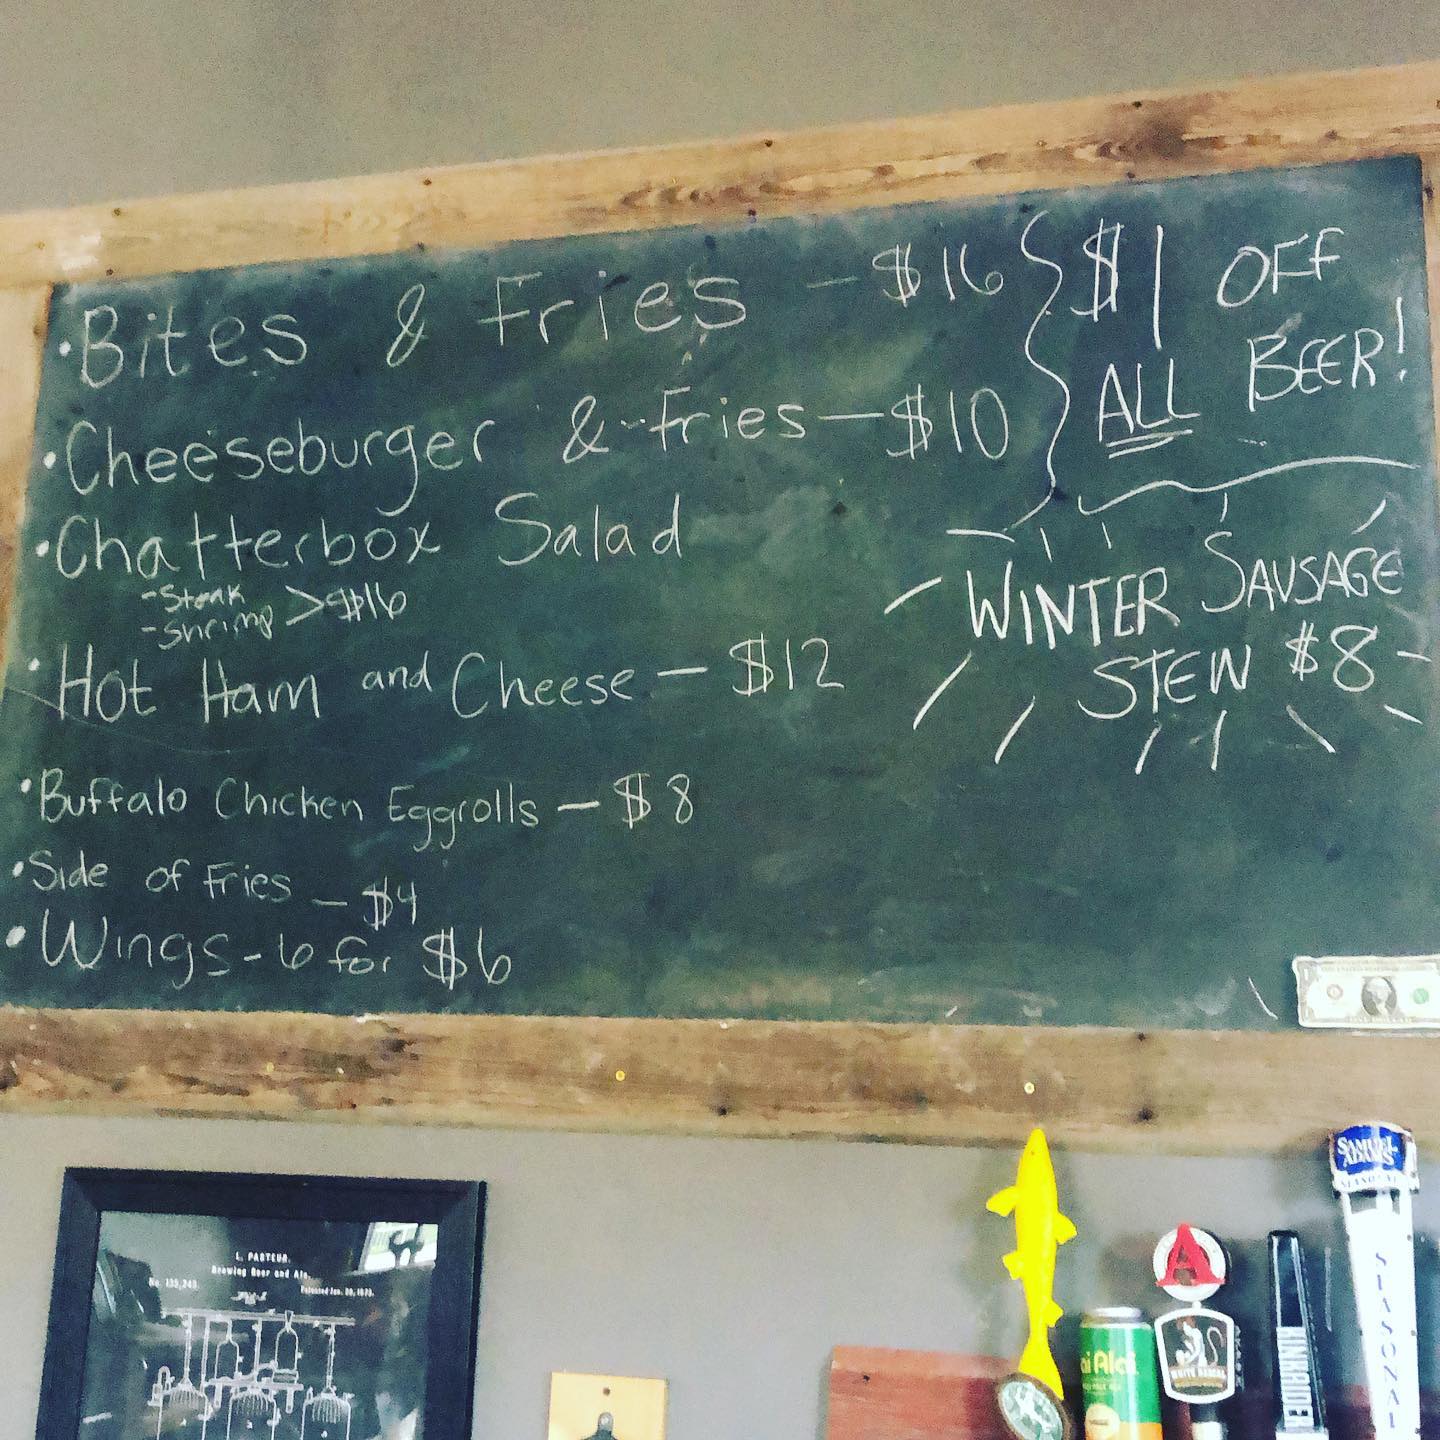 • Bites & Fries - $16
• Cheeseburger & Fries - $10
• Chatterbox Salad
- Steak
- Shrimp > $16
• Hot Ham and Cheese - $12
• Buffalo Chicken Eggrolls - $8
• Side of Fries - $4
• Wings - 6 for $6
$1 OFF
ALL BEER!
WINTER SAUSAGE
STEW $8
L. PASTEUR.
Brewing Beer and Ale.
No. 135,245.
Patented Jan. 28, 1873.
ai Alai
A
WHITE RASCAL
AVERY
SAMUEL
ADAMS
SEASONAL
SEASONAL